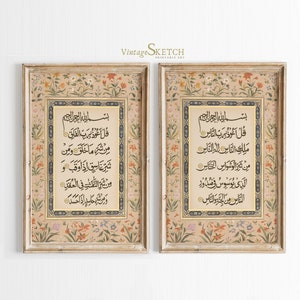 VintageSKETCH
PRINTABLE ART
بسم الله الرحمن الرحيم
قل أعوذ برب الفلق
من شر ما خلق ومن
شر غاسق إذا وقب و
من شر النفاثات في العقد
ومن شر حاسد إذا حسد
بسم الله الرحمن الرحيم
قل أعوذ برب الناس
ملك الناس إله الناس
من شر الوسواس الخناس
الذي يوسوس في صدور
الناس من الجنة والناس